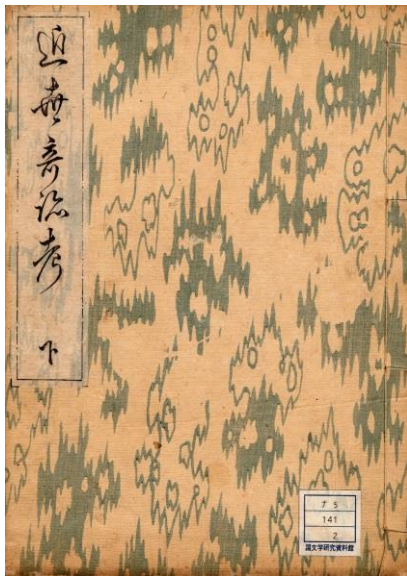 近世奇跡考 下
ナ5
141
2
国文学研究資料館